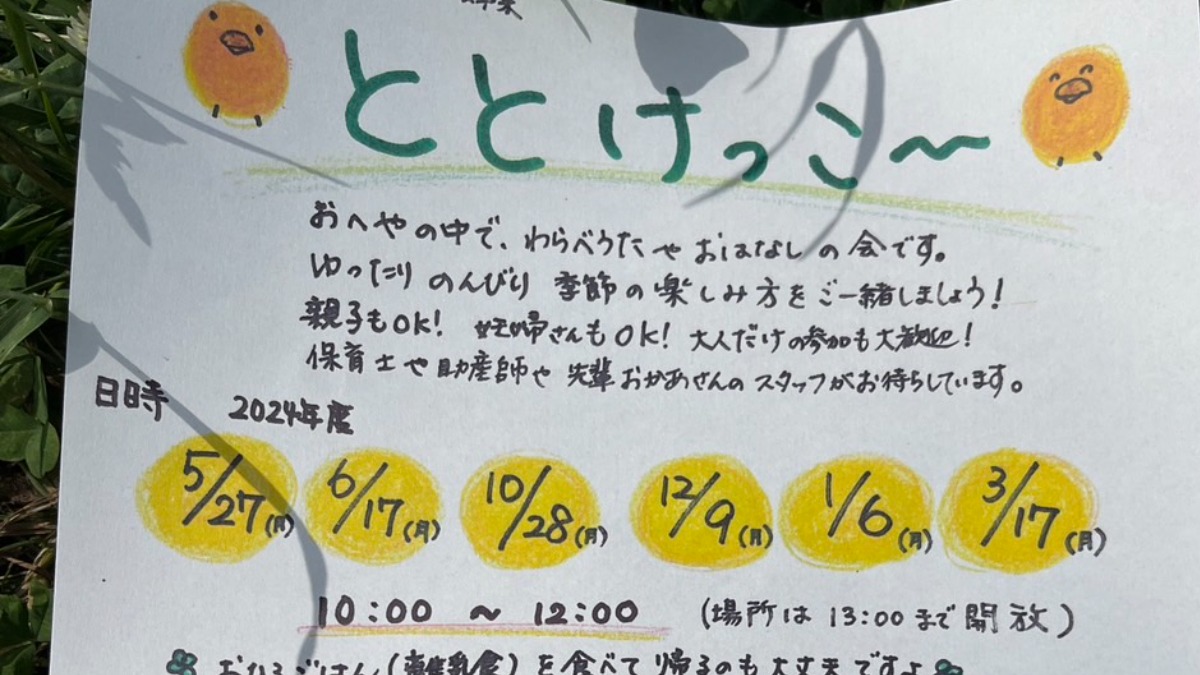 ととけっこ〜
おへやの中で、わらべうたや おはなしの会です。
ゆったり のんびり 季節の楽しみ方をご一緒しましょう!
親子もOK! 妊婦さんもOK! 大人だけの参加も大歓迎!
保育士や助産師や 先輩おかあさんのスタッフがお待ちしています。
日時 2024年度
5/27(月) 6/17(月) 10/28(月) 12/9(月) 1/6(月) 3/17(月)
10:00 〜 12:00 (場所は 13:00まで開放)
おひるごはん(離乳食)を食べて帰るのも大丈夫ですよ